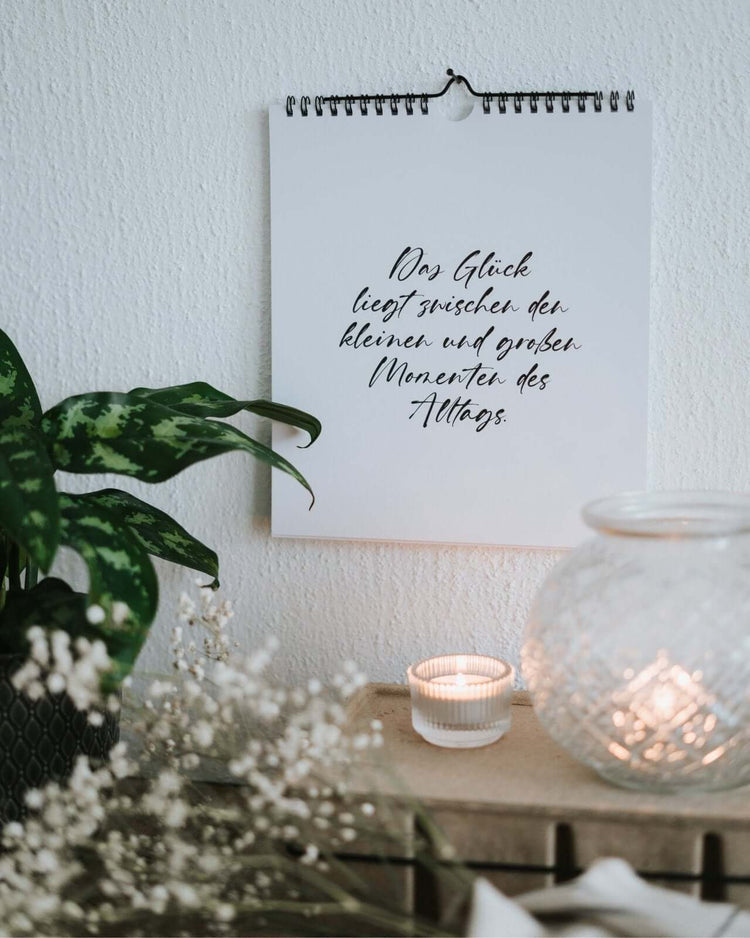 Das Glück
liegt zwischen den
kleinen und großen
Momenten des
Alltags.